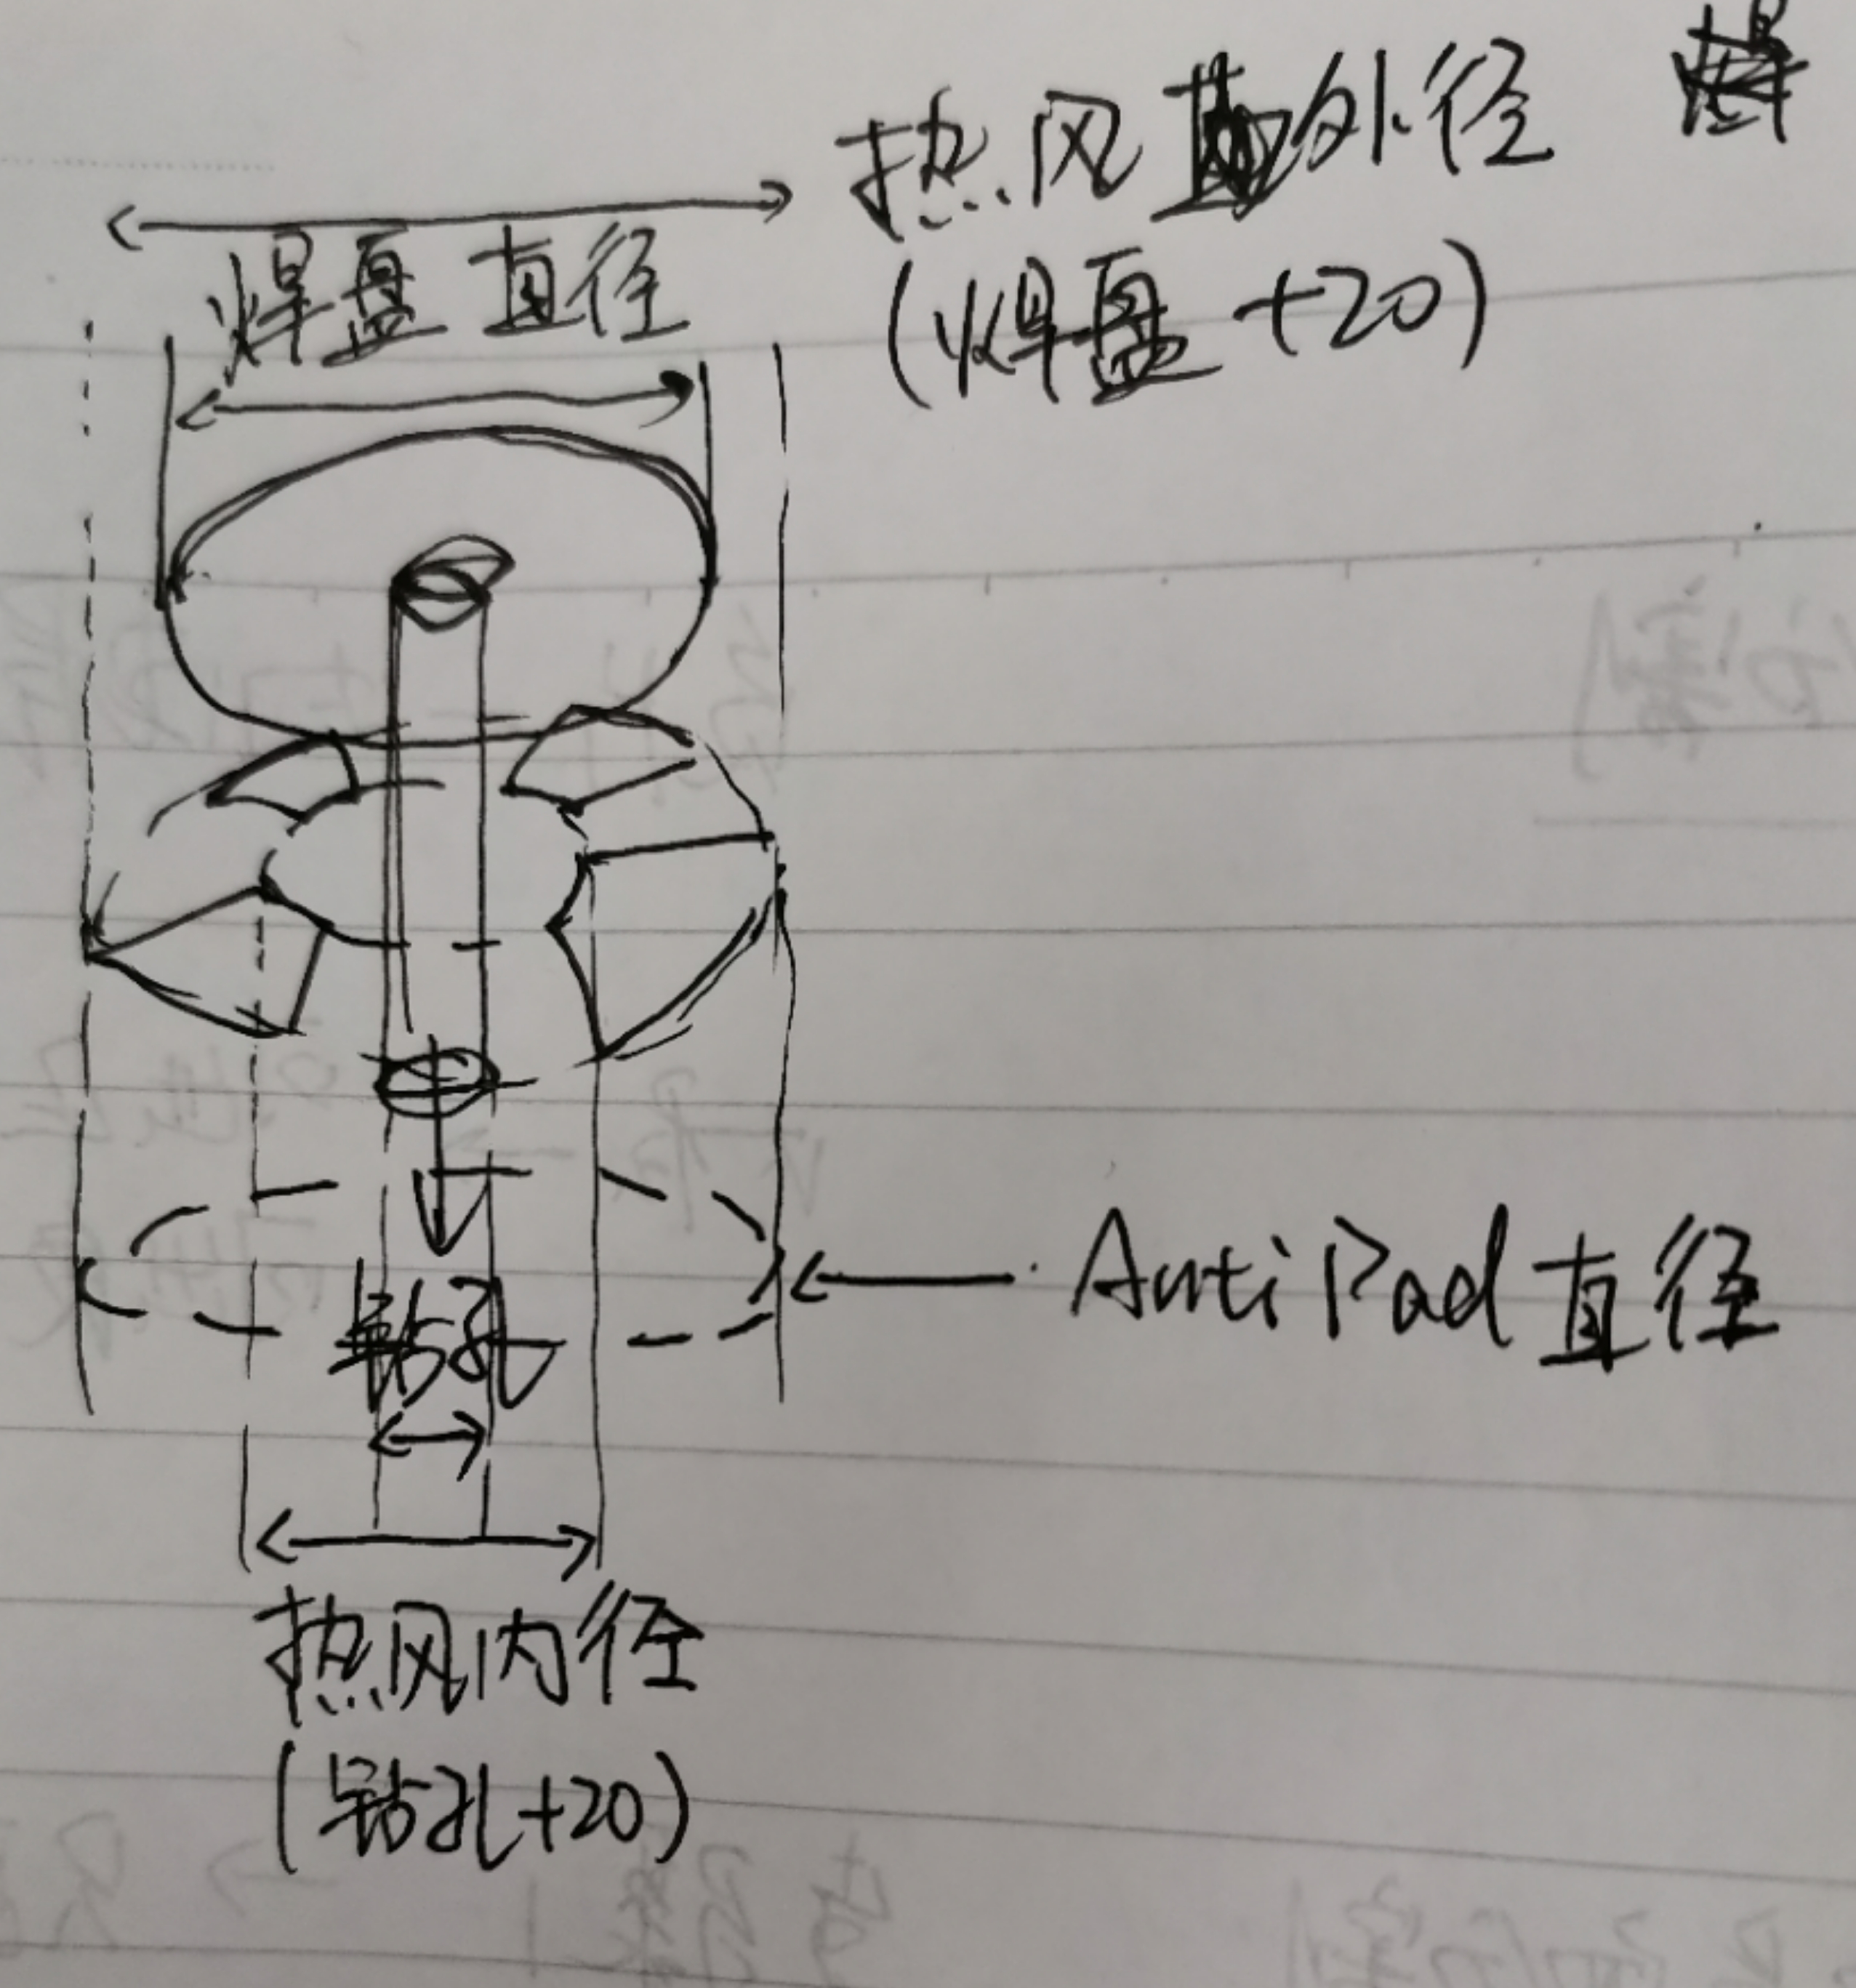 热风外径
(焊盘+20)
焊盘直径
AntiPad直径
钻孔
热风内径
(钻孔+20)